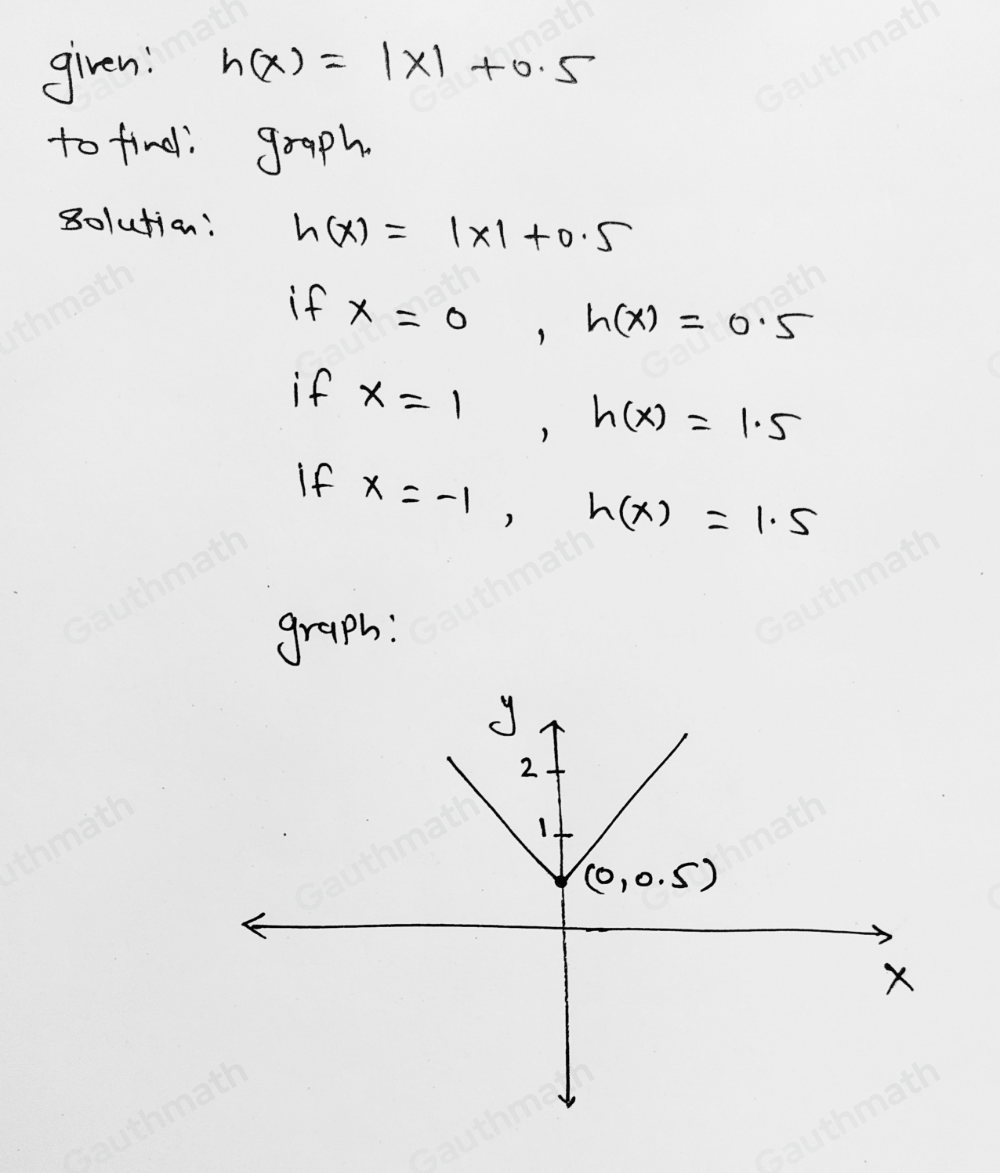 given: h(x) = |x| + 0.5
to find: graph.
solution: h(x) = |x| + 0.5
if x = 0 , h(x) = 0.5
if x = 1 , h(x) = 1.5
If x = -1 , h(x) = 1.5
graph:
y
2
1
(0, 0.5)
x
Gauthmath